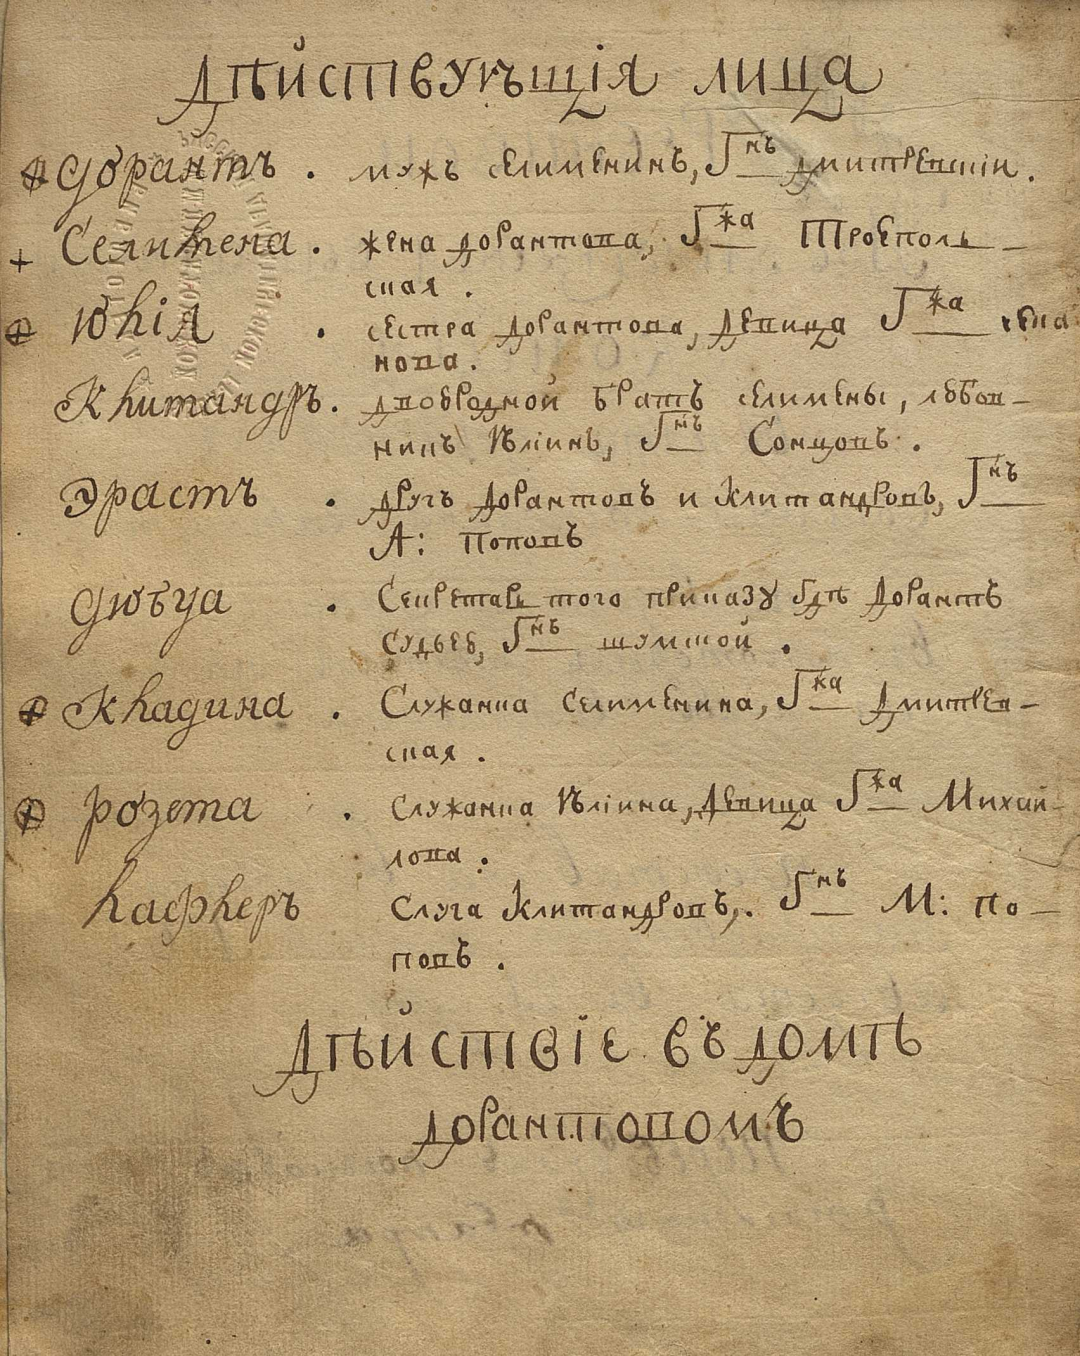 Дѣйствующія лица
Дорантъ . мужъ Селименинъ, Гнъ Дмитревшіи.
Селимена . жена Дорантова, Гжа Троеполь-
ская .
Юлія . сестра Дорантова, девица Гжа
нова.
Клитандръ . двобродной братъ Селимены, любов-
никъ Юліинъ, Гнъ Сонцовъ .
Эрастъ . другъ Дорантовъ и Клитандровъ, Гнъ
А: Поповъ
Дюбуа . Секретарь того приказу гдѣ Дорантъ
судьею, Гнъ Шумской .
Кладина . Служанка Селименина, Гжа Дмитрев-
ская .
Розета . служанка Юліина, девица Гжа Михай-
лова .
Лафлеръ Слуга Клитандровъ, . Гнъ М: По-
повъ .
Дѣйствіе въ домѣ
Дорантовомъ